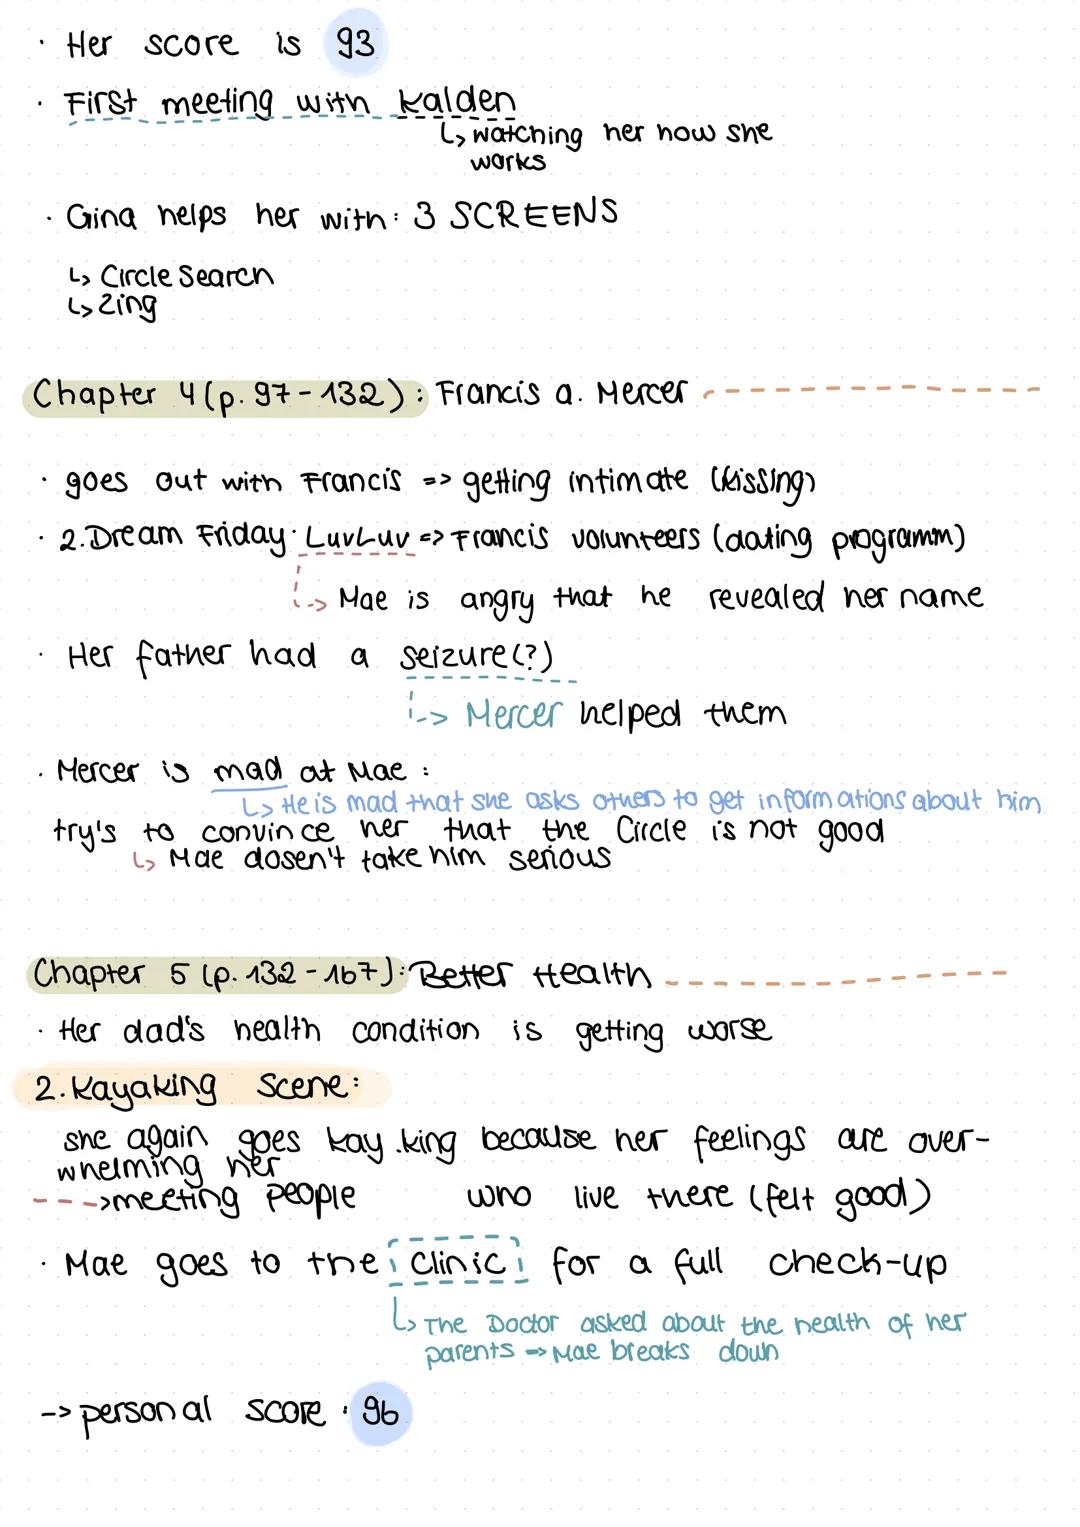 · Her score is 93
· First meeting with Kalden
↳ watching her how she
works
· Gina helps her with: 3 SCREENS
↳ Circle Search
↳ Zing
Chapter 4 (p. 97-132): Francis a. Mercer
· goes out with Francis => getting intimate (kissing)
· 2. Dream Friday: LuvLuv => Francis volunteers (dating programm)
--> Mae is angry that he revealed her name
· Her father had a seizure(?)
--> Mercer helped them
· Mercer is mad at Mae:
↳ He is mad that she asks others to get informations about him
try's to convince her that the Circle is not good
↳ Mae dosen't take him serious
Chapter 5 (p. 132-167): Better Health
· Her dad's health condition is getting worse
2. Kayaking Scene:
she again goes kay.king because her feelings are over-
whelming her
---> meeting people who live there (felt good)
· Mae goes to the clinic for a full check-up
↳ The Doctor asked about the health of her
parents -> Mae breaks down
-> personal score: 96